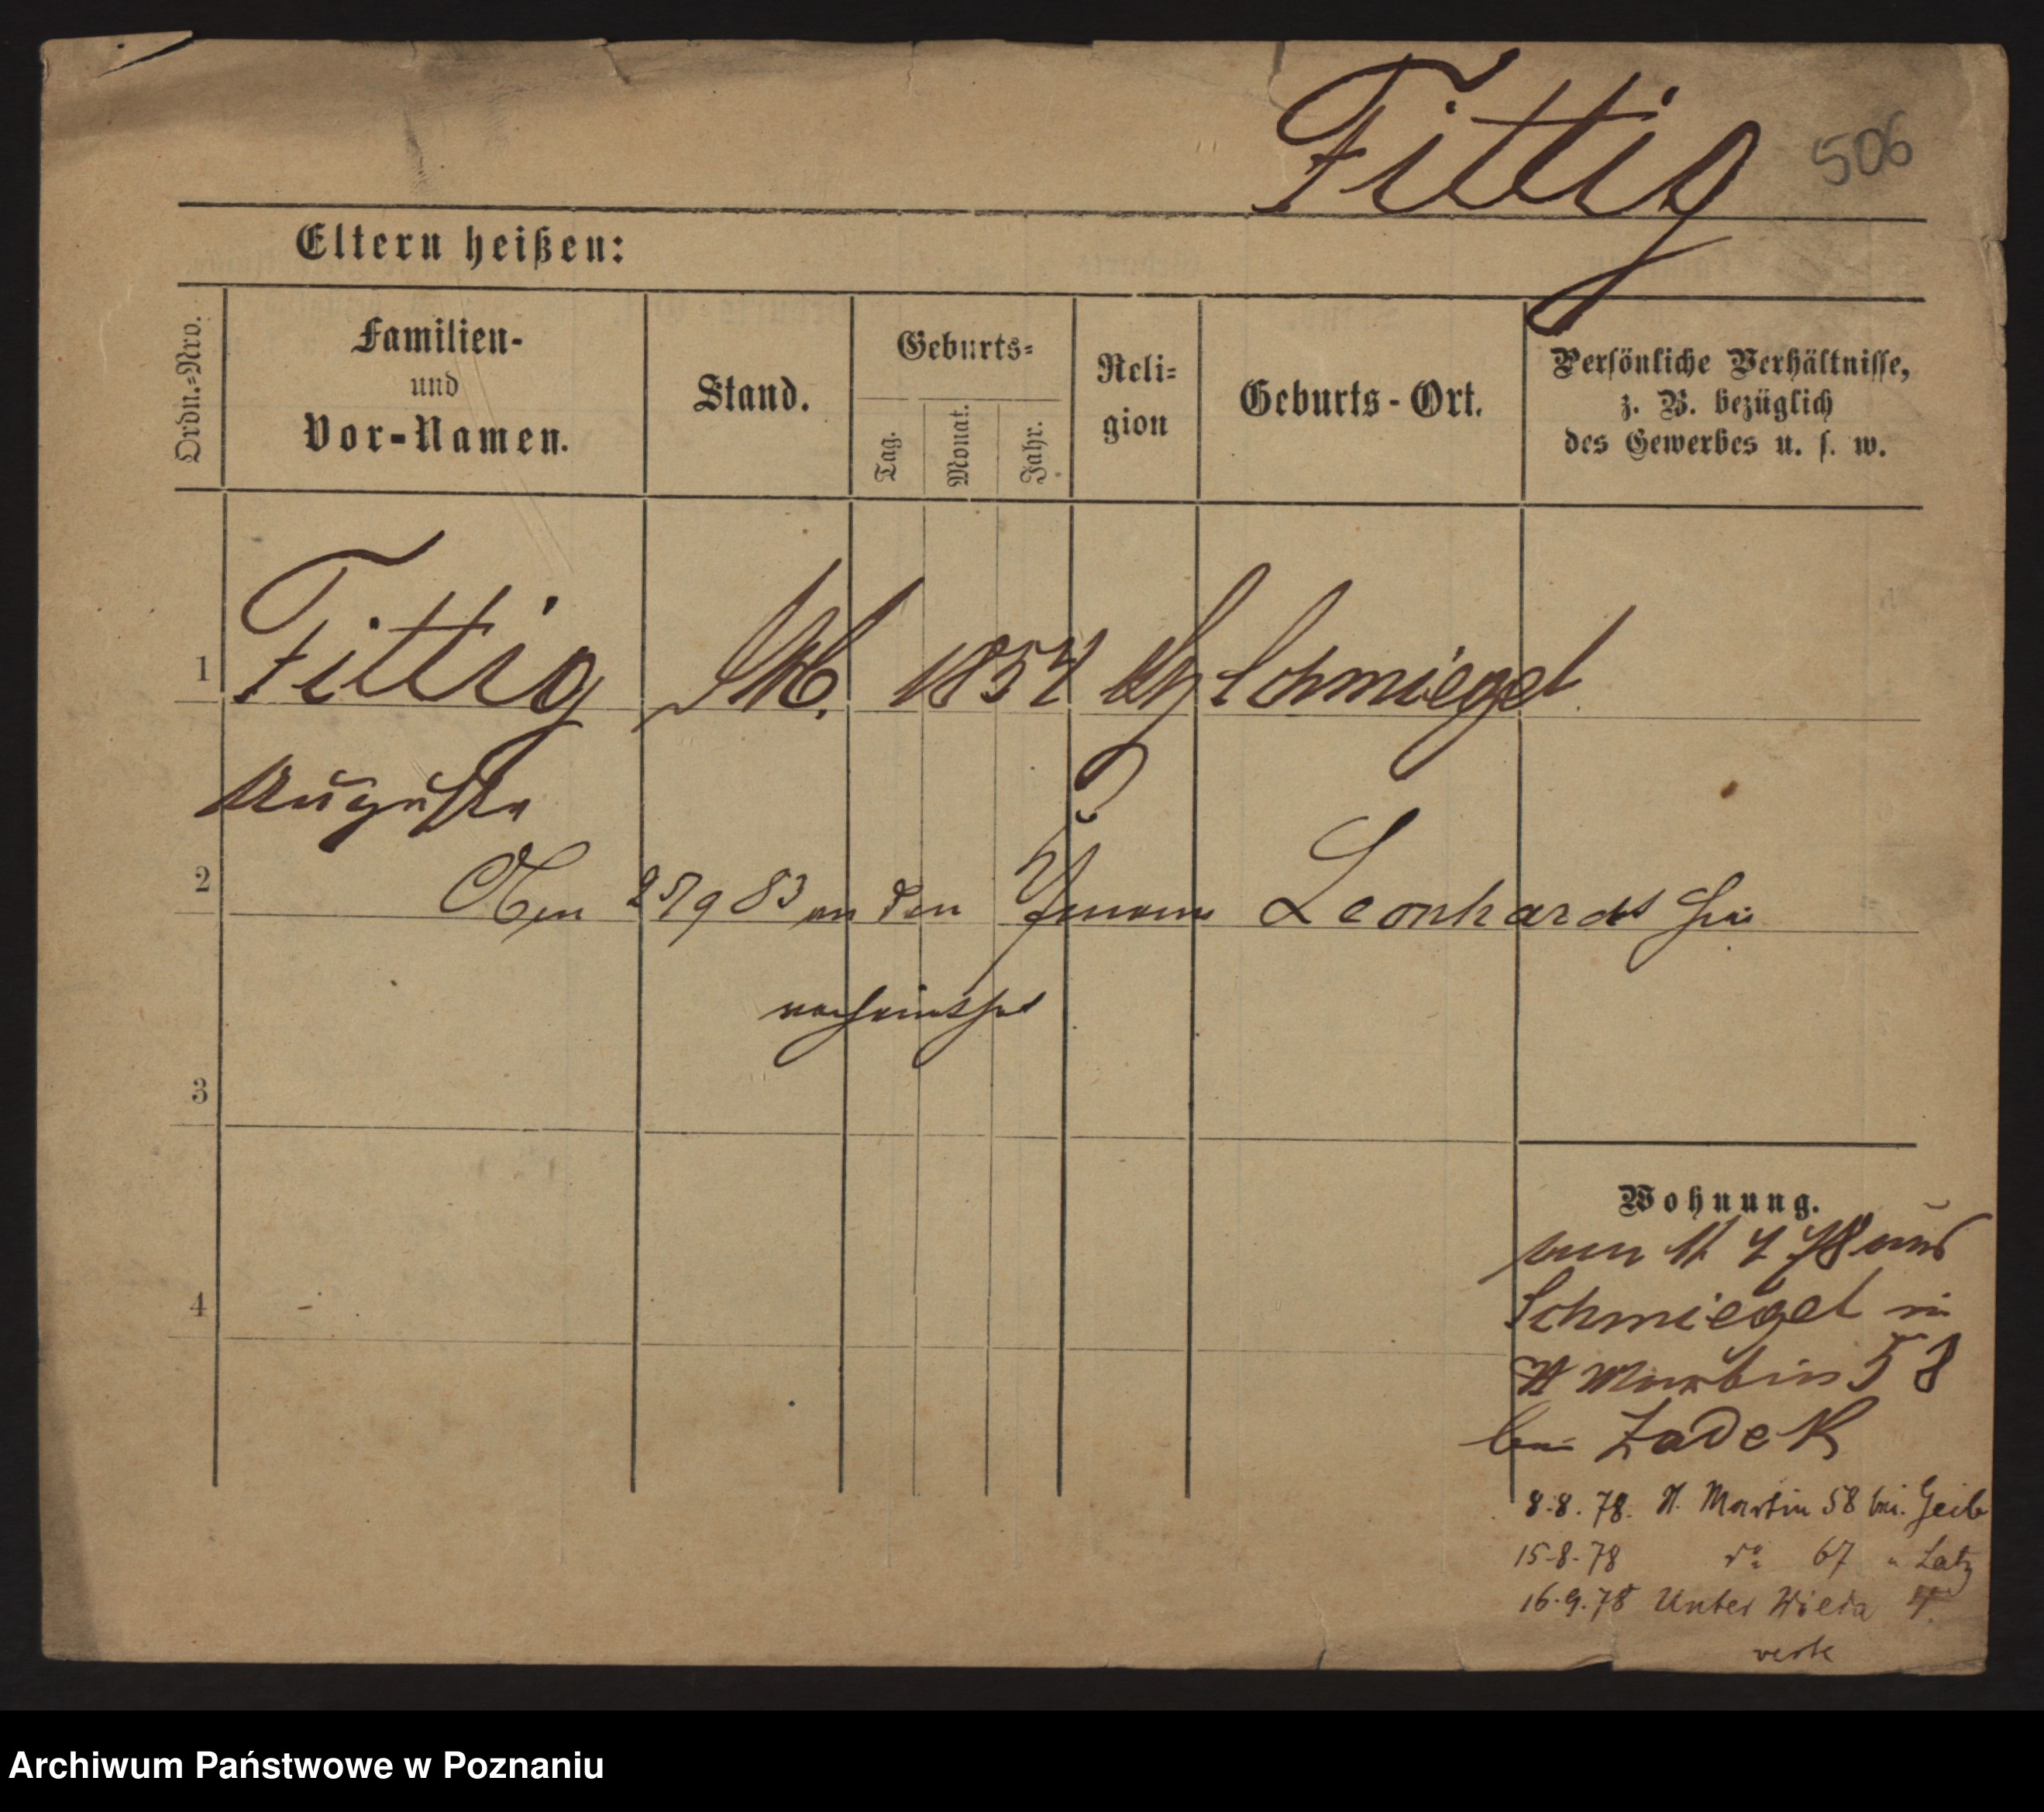 Fittig 506
Eltern heißen:
Ordn.=Nro.
Familien-
und
Vor-Namen.
Stand.
Geburts=
Tag.
Monat.
Jahr.
Reli=
gion
Geburts-Ort.
Persönliche Verhältnisse,
z. B. bezüglich
des Gewerbes u. s. w.
1 Fittig 1854 Schmiegel
Auguste
2 25/9 83 an den Leonhardt hier
verheirathet
3
Wohnung.
4
von 11 7 78 aus
Schmiegel in
St Martin 58
bei Zadek
8.8.78. St. Martin 58 bei Geib
15-8-78 do 67 " Latz
16.9.78 Unter Wilda 4.
Archiwum Państwowe w Poznaniu